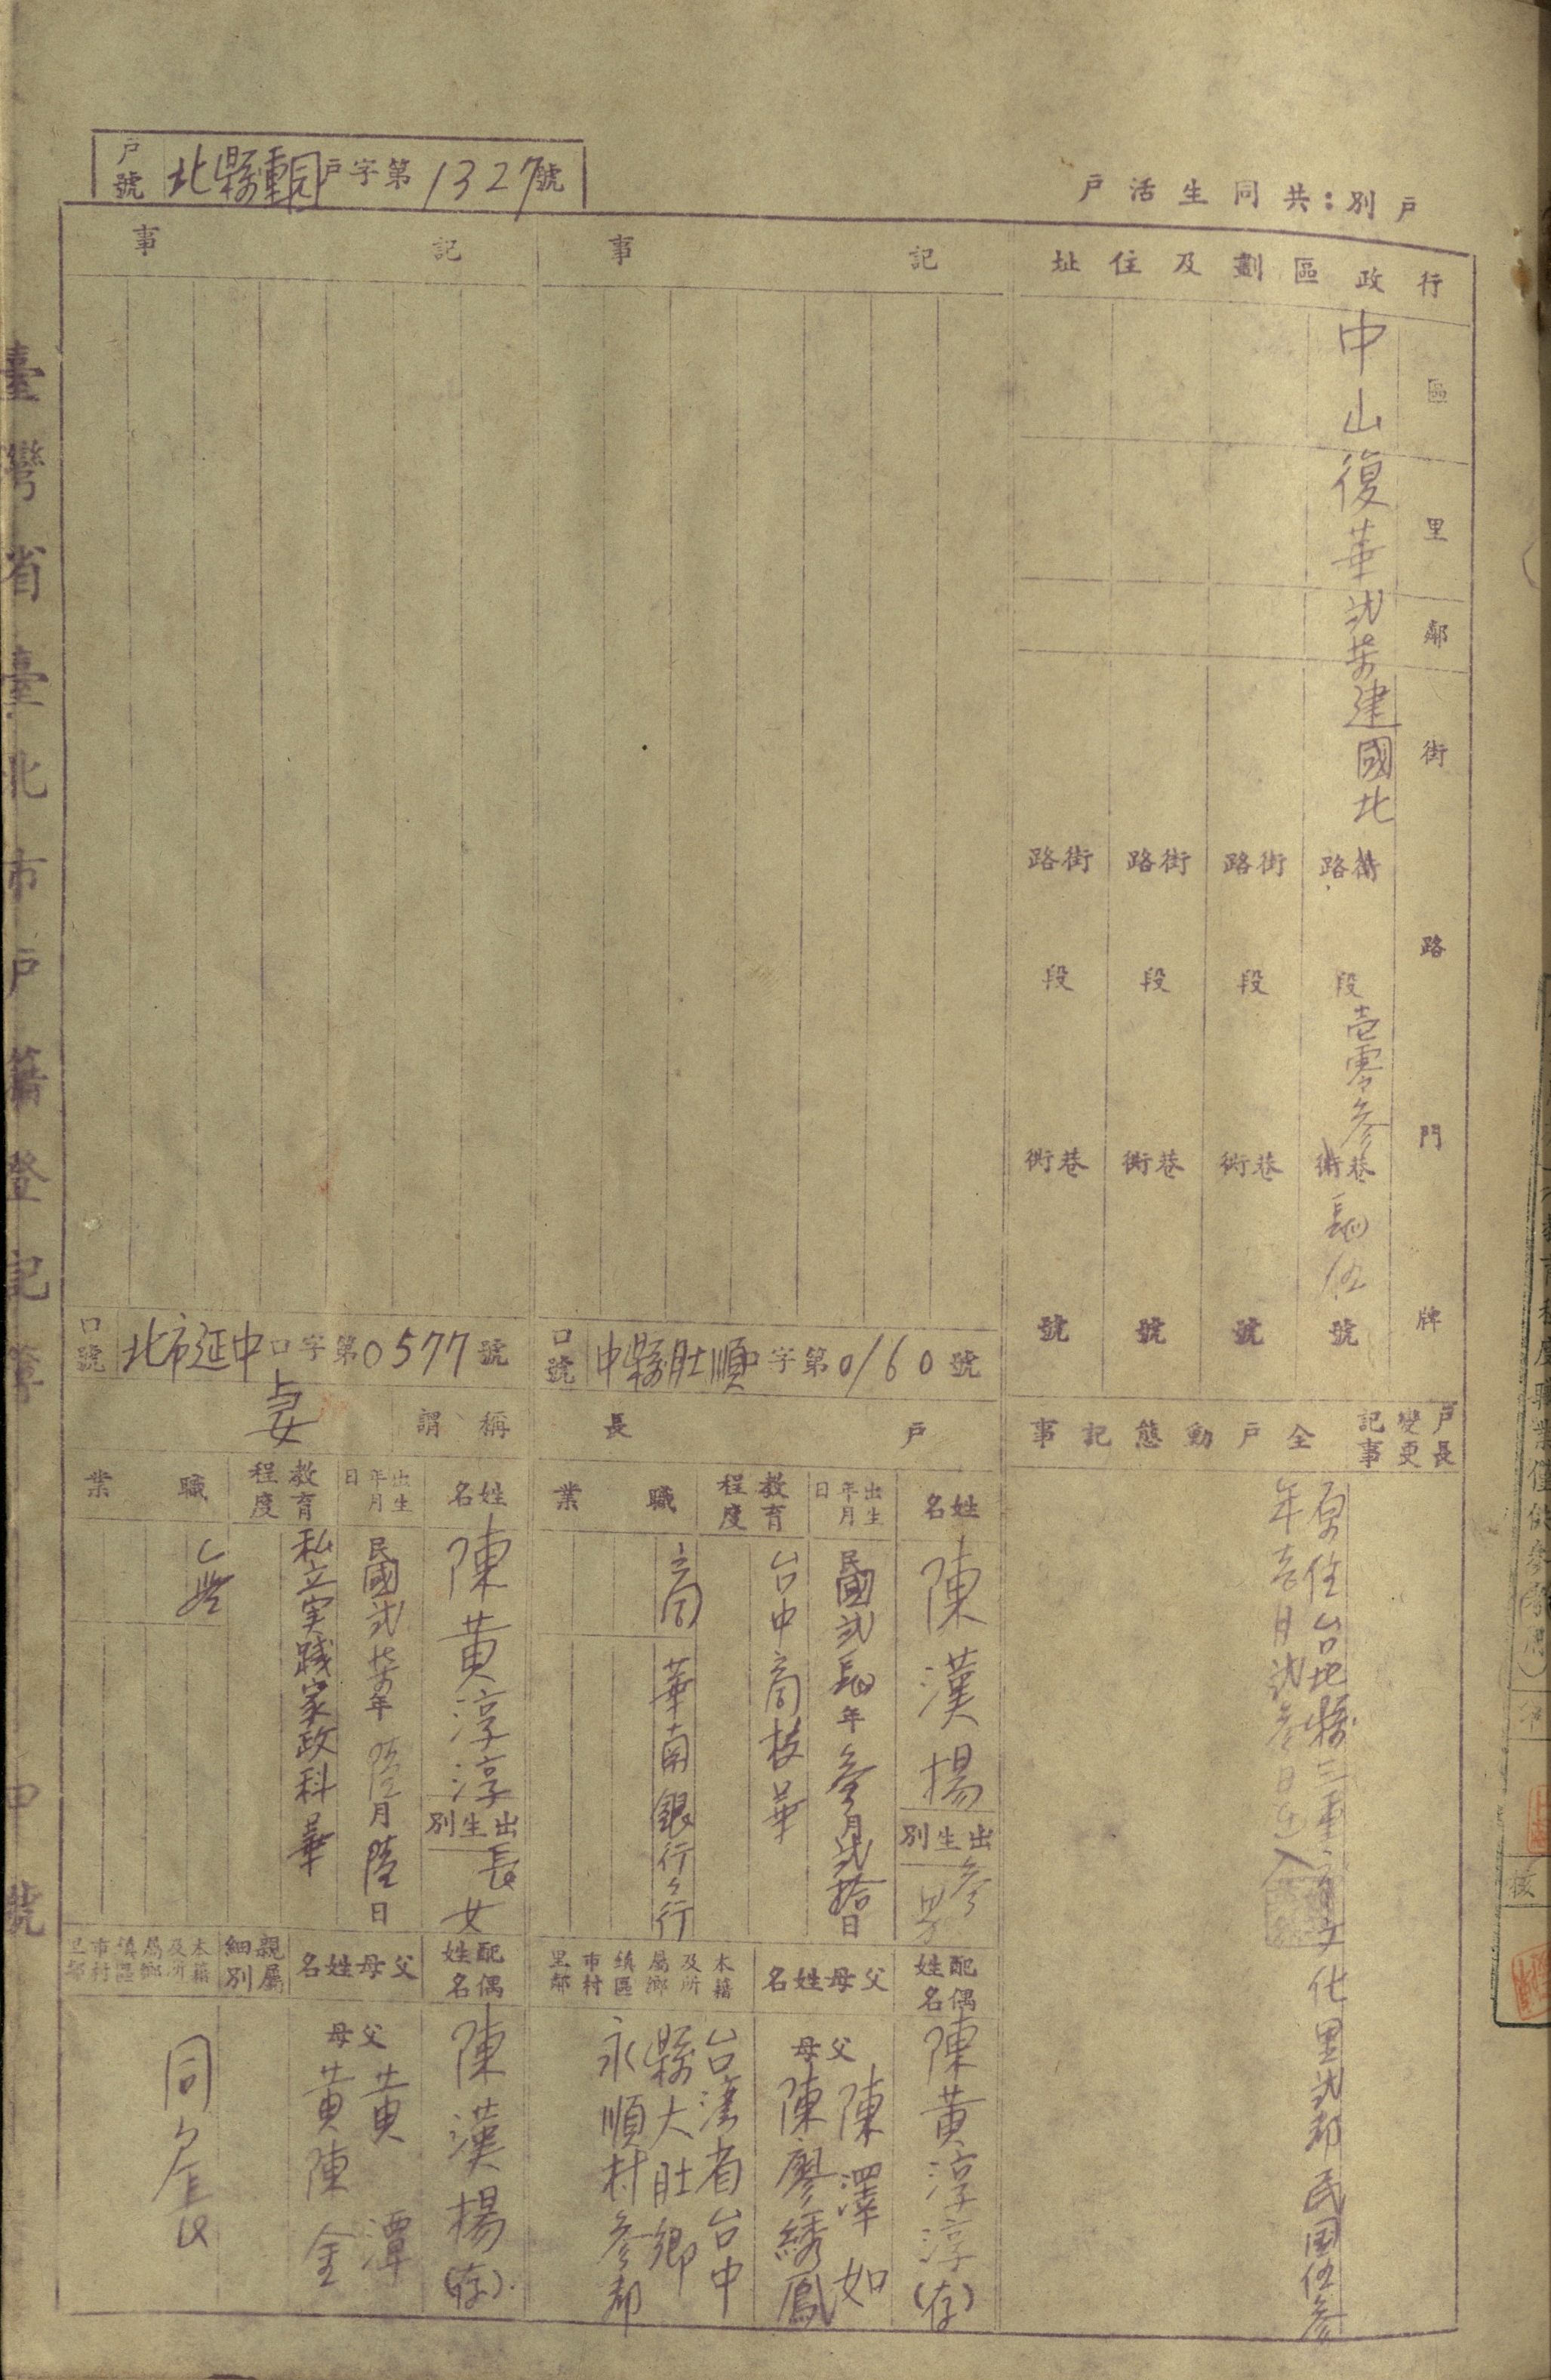 戶號 北縣重同戶字第1327號
戶別：共同生活戶
行政區劃及住址
區 里 鄰 街路門牌
中山
復華
弍柒
建國北
街路
段
壹零參
巷衖
肆伍
號
街路 段 巷衖 號
街路 段 巷衖 號
街路 段 巷衖 號
戶長變更記事
全戶動態記事
原住台北縣三重市文化里弍鄰民国伍參
年壱月弍參日遷入
記事
口號 中縣肚順口字第0160號
戶長
姓名 陳漢揚
出生別 參男
出生年月日 民國弍肆年參月弍拾日
教育程度 台中商校畢
職業 商 華南銀行行
配偶姓名 陳黃淳淳(存)
父母姓名
父 陳澤如
母 陳廖綉鳳
本籍及所屬鄉鎮區市村里鄰
台灣省台中
縣大肚鄉
永順村參鄰
記事
口號 北市延中口字第0577號
稱謂 妻
姓名 陳黃淳淳
出生別 長女
出生年月日 民國弍柒年陸月陸日
教育程度 私立实踐家政科畢
職業 無
配偶姓名 陳漢楊(存)
父母姓名
父 黃潭
母 黃陳金
親屬細別
本籍及所屬鄉鎮區市村里鄰
同戶長
臺灣省臺北市戶籍登記簿